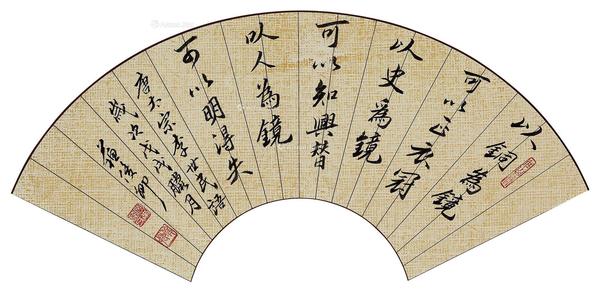 以銅為鏡
可以正衣冠
以史為鏡
可以知興替
以人為鏡
可以明得失
唐太宗李世民語
歲次戊戌臘月